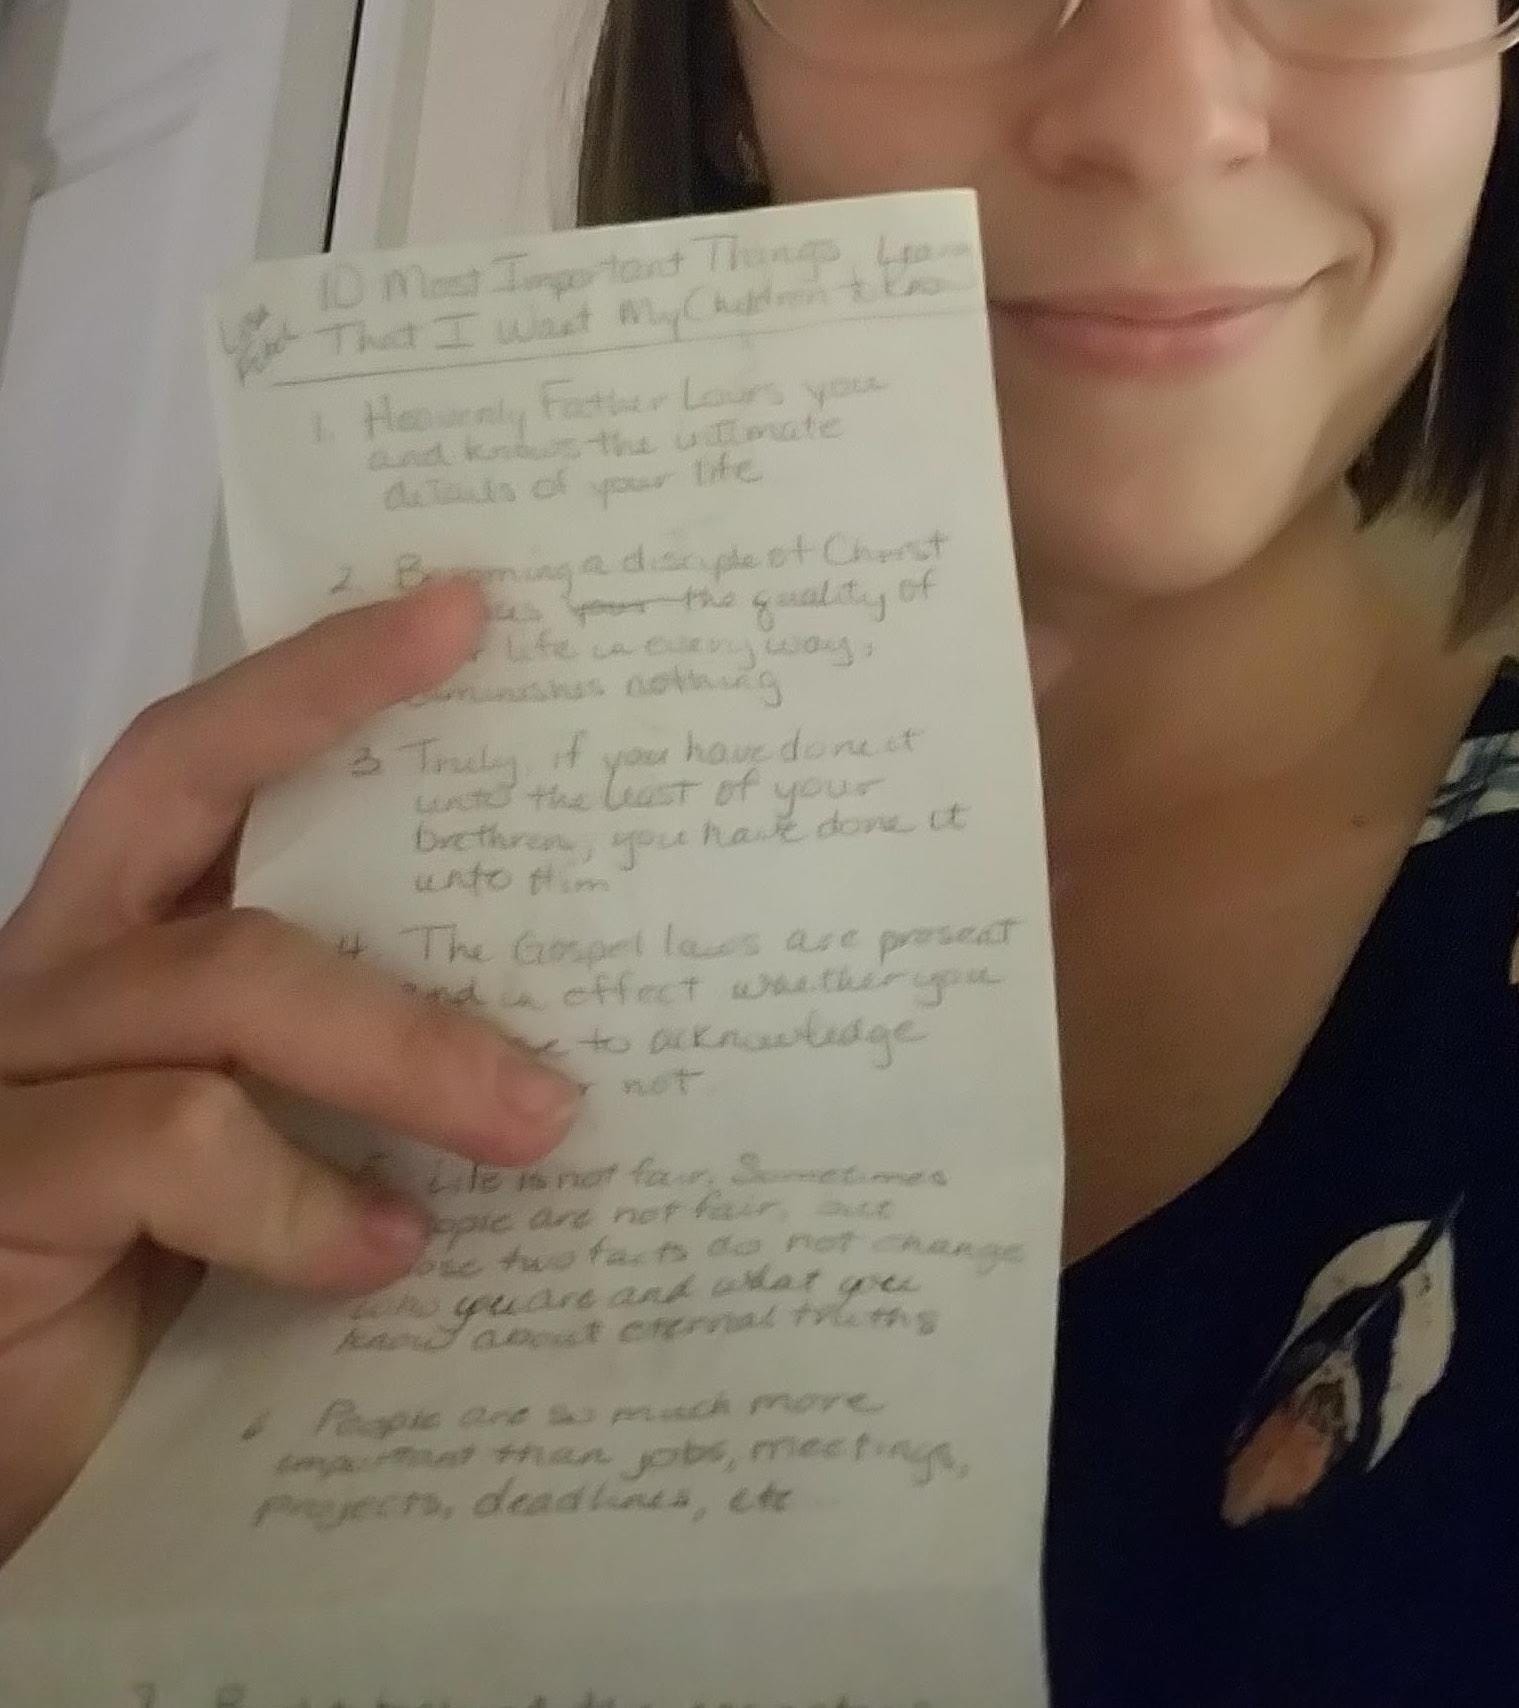 10 Most Important Things
That I Want My Children to Know
1. Heavenly Father Loves you
and knows the ultimate
details of your life
2. Becoming a disciple of Christ
your the quality of
life in every way,
diminishes nothing
3 Truly, if you have done it
unto the least of your
brethren, you have done it
unto Him
4 The Gospel laws are present
and in effect whether you
to acknowledge
or not
5 Life is not fair. Sometimes
people are not fair, but
those two facts do not change
who you are and what you
know about eternal truths
6 People are so much more
important than jobs, meetings,
projects, deadlines, etc
7